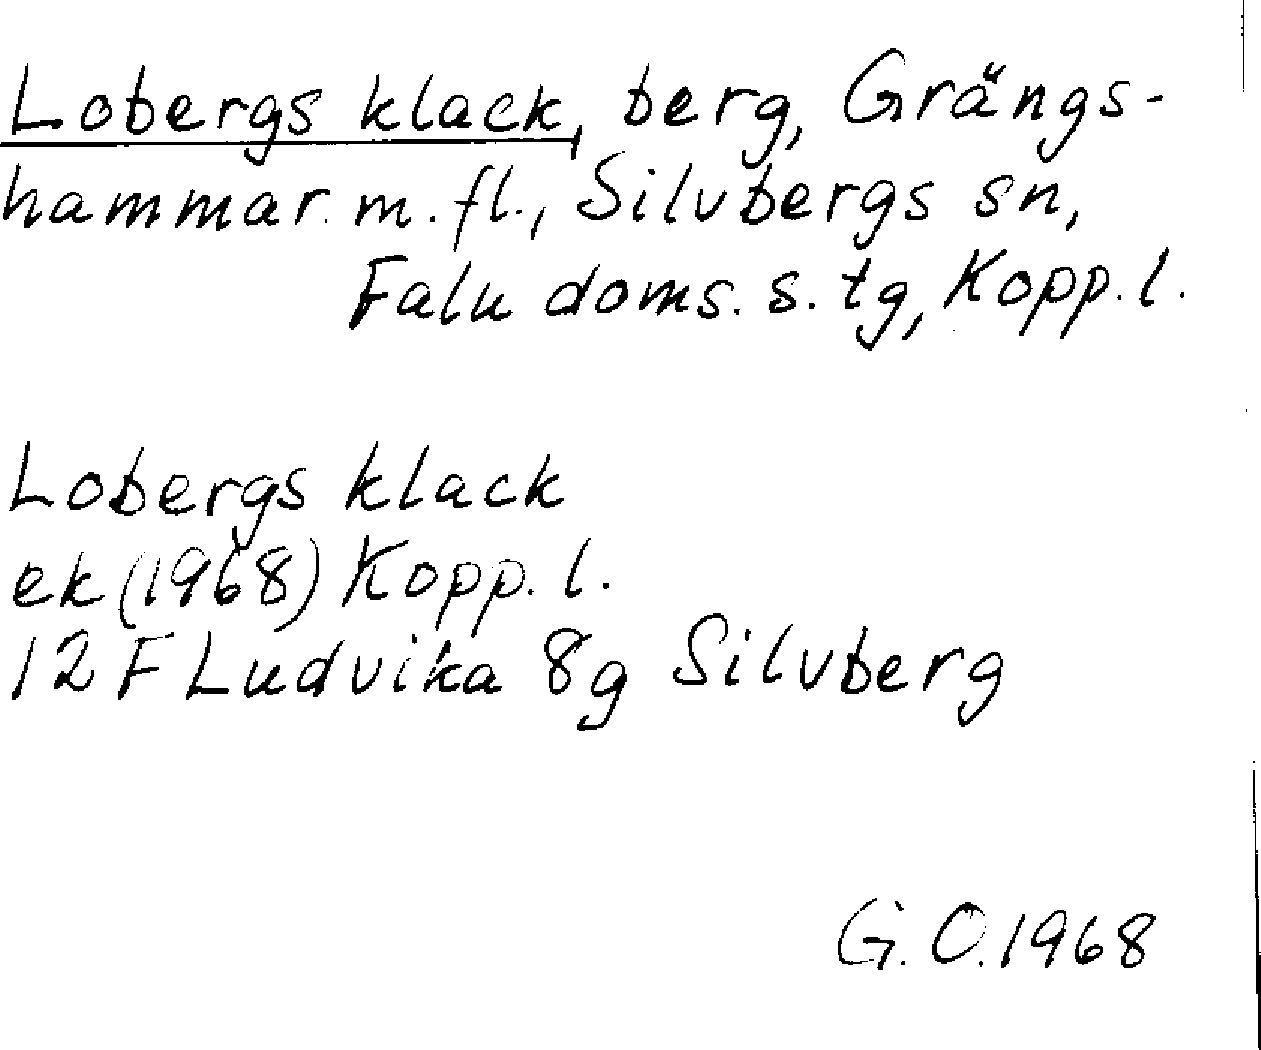 Lobergs klack, berg, Grängs-
hammar m.fl., Silvbergs sn,
Falu doms. s. tg, Kopp. l.
Lobergs klack
ek (1968) Kopp. l.
12 F Ludvika 8g Silvberg
G. O. 1968